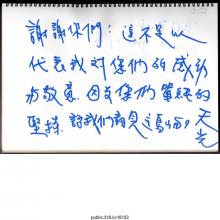 謝謝你們：這不足以
代表我對你們的感
与敬意, 因为你們單純的
堅持, 讓我們看見這島的
天光
public.318.io/8123